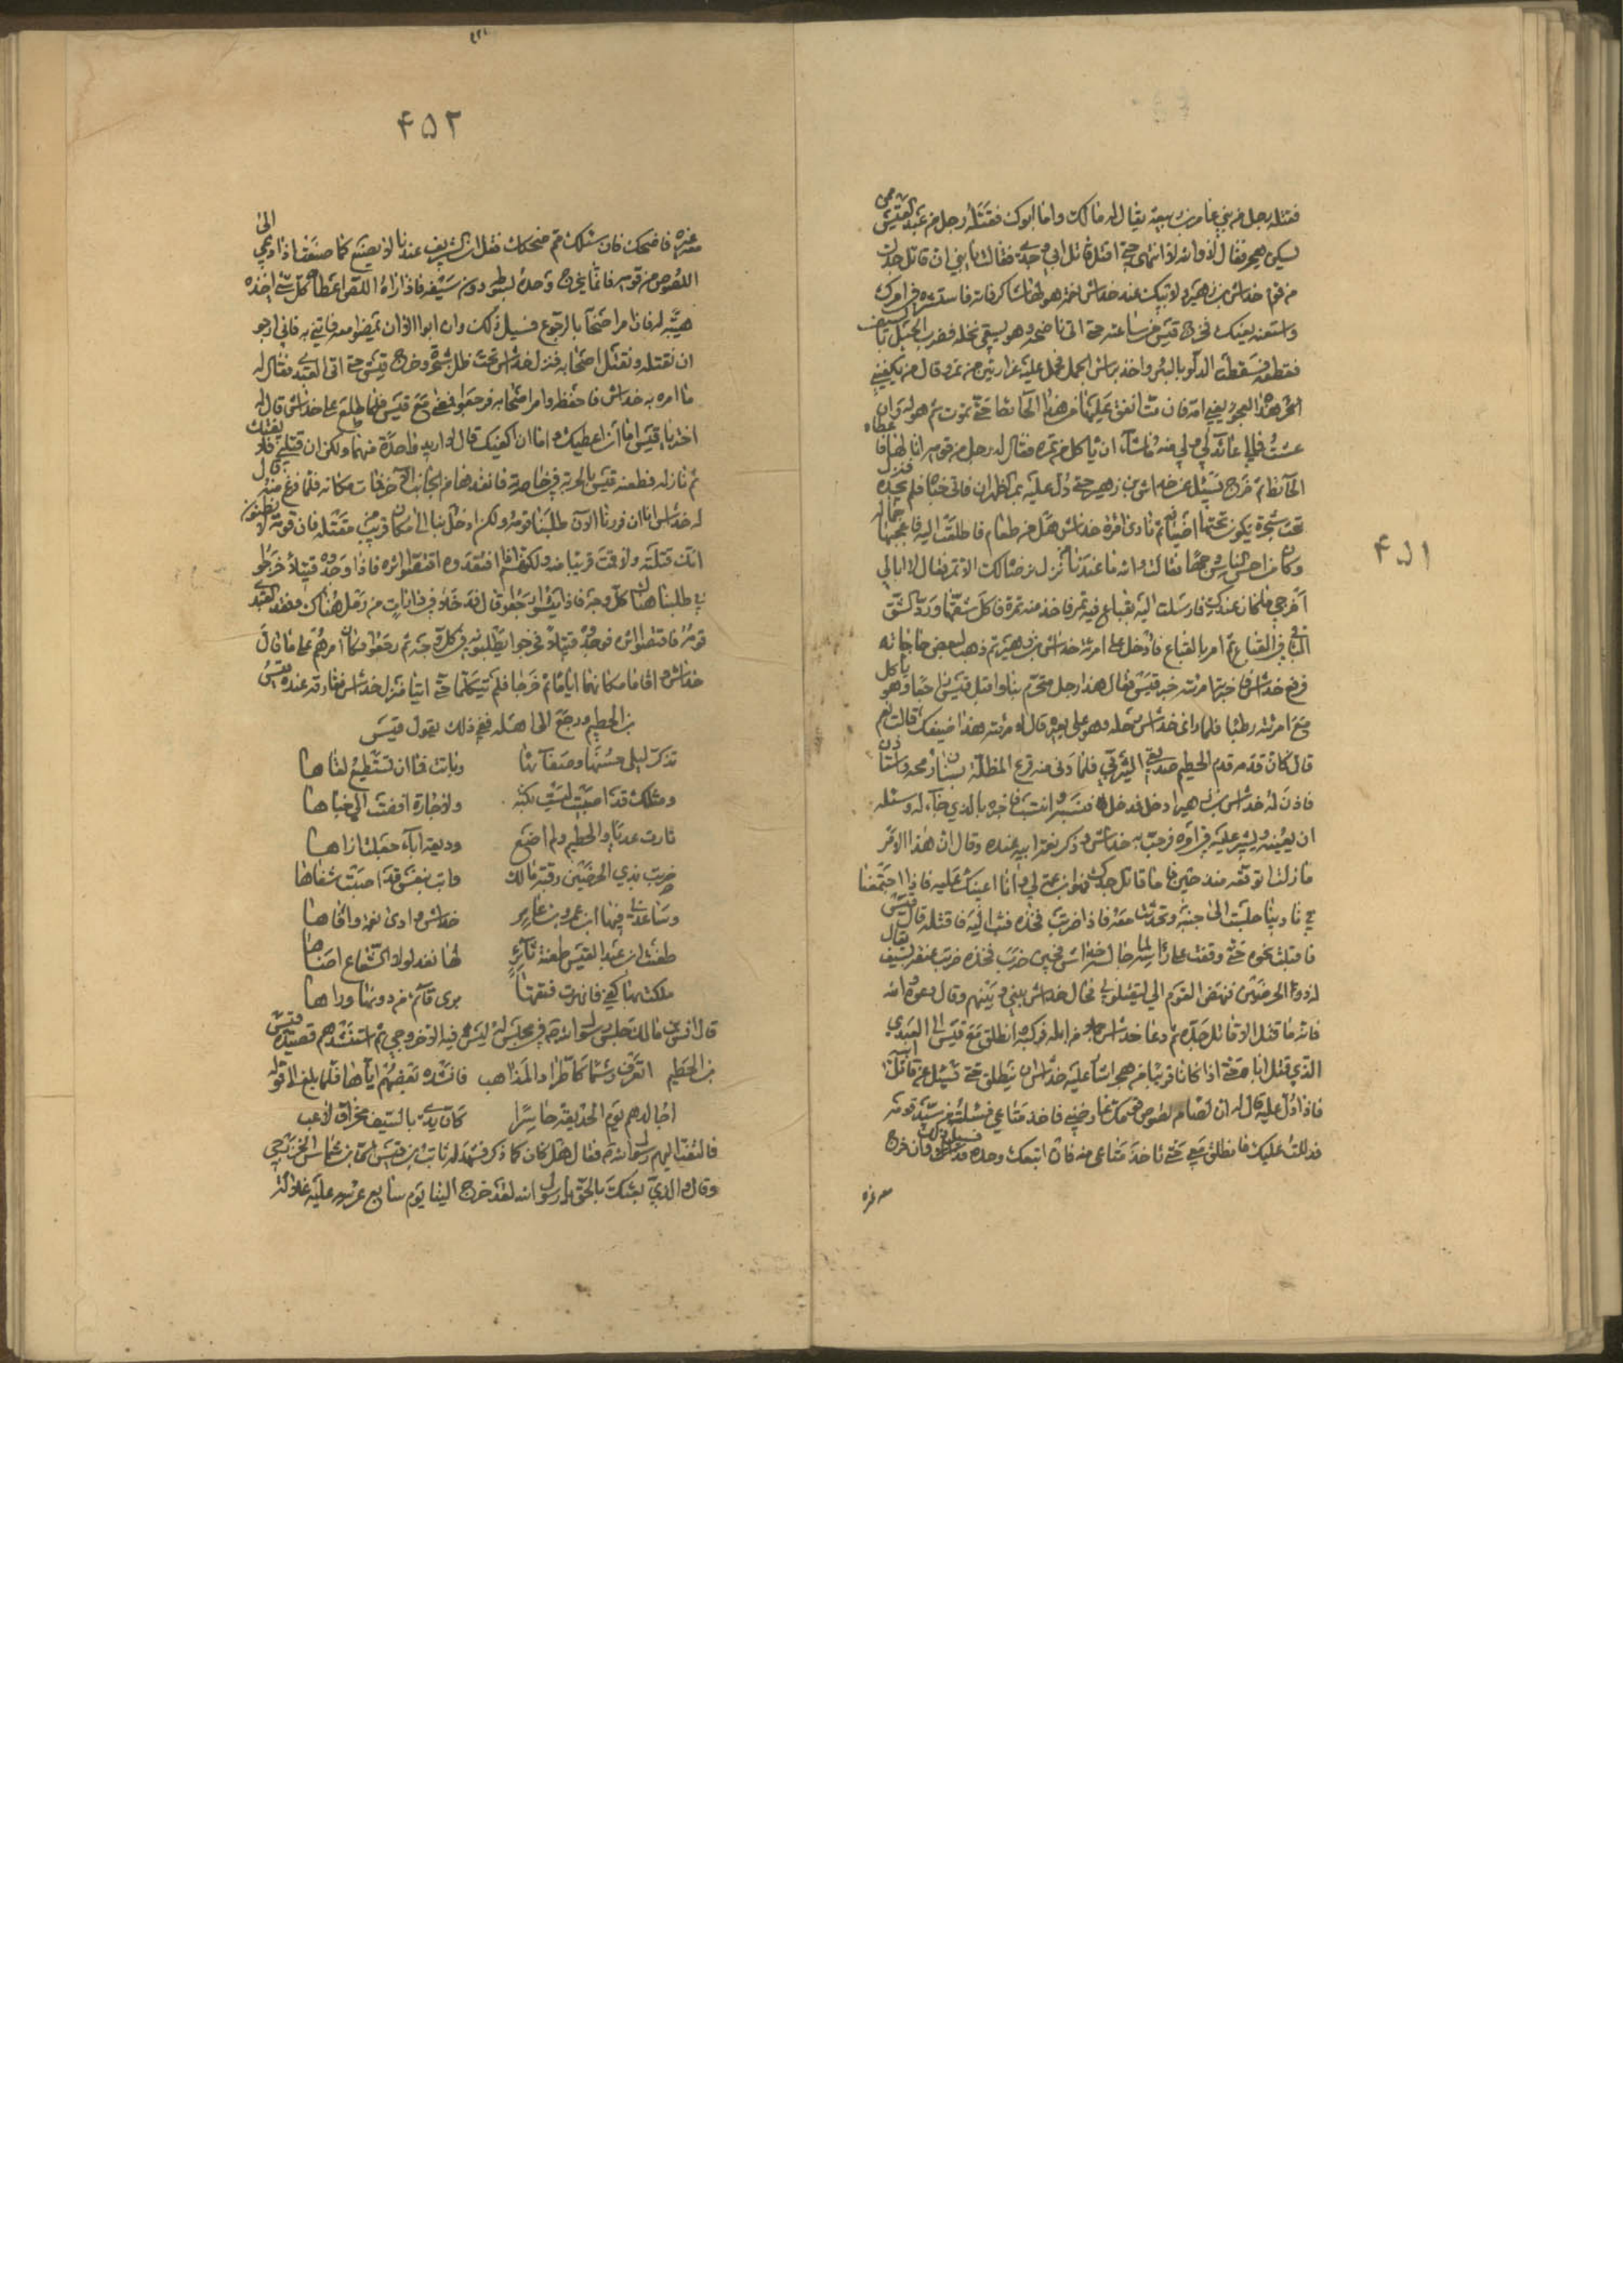 فقتله رجل من بني عامر بن ربيعة يقال له مالك واما ابوك فقتله رجل من عبد القيس ممن
يسكن هجر فقال لا والله لا انتهى حتى اقتل قاتل ابي وجدي فقالت يا بني ان قاتل جدك
من قوم خداش بن زهير ولابيك عند خداش نعمة هو لها شاكر فاته فاستشره في امرك
واستعنه يعنك فخرج قيس من ساعته حتى اتى ناضحه وهو يسقي نخله فضرب الحبل بالسيف
فقطعه فسقطت الدلو بالبئر واخذ براس الجمل فحمل عليه غرارتين من تمر وقال من يكفيني
امر هذه العجوز يعني امه فان مت انفق عليها من هذا الحائط حتى تموت ثم هو له وان
عشت فمالي عائد الي ولي منه ما شاء ان ياكل من تمره فقال له رجل من قومه انا لها فاعطاه
الحائط ثم خرج يسئل عن خداش بن زهير حتى دل عليه بمر الظهران فاتى خباه فلم يجده فنزل
تحت شجرة يكون تحتها اضيافه ثم نادى امرأة خداش هل من طعام فاطلعت اليه فاعجبها جماله
وكان من احسن الناس وجها فقالت والله ما عندنا من نزل نرضا لك الا تمر فقال لا ابالي
اخرجي ما كان عندك فارسلت اليه بقباع فيه تمر فاخذ منه تمرة فاكل شقها ورد الشق
الباقي في القباع ثم امر بالقباع فادخل على امرئة خداش بن زهير ثم ذهب لبعض حاجاته
فرجع خداش فاخبرته امرئته خبر قيس فقال هذا رجل متحرم بنا واقبل قيس راجعا وهو ياكل
مع امرئته رطبا فلما رأى خداش رحله وهو على بعيره قال لامرئته هذا ضيفك قالت نعم
قال كان قدمه قدم الخطيم صديقي اليثربي فلما دنى منه قرع المظلة بسنان رمحه واستاذن
فاذن له خداش بن زهير ادخل فدخل فنسبه وانتسب فاخبره بالذي جاء له وسئله
ان يعينه ويشير عليه في امره فرحب به خداش وذكر نعمة ابيه عنده وقال ان هذا الامر
ما زلت اتوقعه منذ حين فاما قاتل جدك فهو ابن عم لي وانا اعينك عليه فاذا اجتمعنا
في نادينا جلست الى جنبه وتحدثت معه فاذا ضربت فخذه فثب اليه فاقتله فقال قيس
فاقبلت نحوه حتى وقفت على رأسه لما جالسه خداش فحين ضرب فخذه ضربت عنقه بسيف يقال
له ذو الخرصين فنهض القوم الي ليقتلوني فحال خداش بيني وبينهم وقال دعوه والله
فانه ما قتل الا قاتل جده ثم دعا خداش بجمل من ابله فركبه وانطلق مع قيس الى العبدي
الذي قتل اباه حتى اذا كانا قريبا من هجر اشار عليه خداش ان ينطلق حتى يسئل عن قاتل ابيه
فاذا دل عليه قال له ان لصا من لصوص قومك عارضني فاخذ متاعي فسئلت من سيد قومه
فدللت عليك فانطلق معي حتى تاخذ متاعي منه فان اتبعك وحده فستنال ما تريد وان خرج
معه غيره
۴۵۱
۴۵۲
معه غيره فاضحك فان سئلك مم ضحكت فقل ان الشريف عندنا لا يصنع كما صنعت اذا دعي الى
اللصوص من قومه فانما يخرج وحده بسوطه دون سيفه فاذا رآه اللص اعطاه كل شئ اخذه
هيبة له فان امر اصحابه بالرجوع فسبيل ذلك وان ابوا الا ان يمضوا معه فاتني به فاني ارجو
ان نقتله ونقتل اصحابه فنزل خداش تحت ظل شجرة وخرج قيس حتى اتى العبدي فقال له
ما امره به خداش فاحفظه وامر اصحابه فرجعوا ومضى مع قيس فلما طلع على خداش قال له
اختر يا قيس اما ان اعينك واما ان اكفيك قال لا اريد واحدة منهما ولكن ان قتلني فلا يفلتك
ثم نازله فطعنه قيس بالحربة في خاصرته فانفذها من الجانب الآخر فمات مكانه فلما فرغ منه قال
له خداش انا ان فررنا الآن طلبنا قومه ولكن ادخل بنا الى مكان قريب من مقتله فان قومه لا يظنون
انك قتلته واقمت قريبا منه ولكنهم اذا افتقدوه اقتفوا اثره فاذا وجدوه قتيلا خرجوا
في طلبنا هناك كل وجه فاذا يئسوا رجعوا قال فدخلا في دارات من رمل هناك وفقد العبدي
قومه فاقتفوا اثره فوجدوه قتيلا فخرجوا يطلبونهما في كل وجه ثم رجعوا فكان امرهم على ما قال
خداش واقاما مكانهما اياما ثم خرجا فلم يتكلما حتى اتيا منزل خداش ففارقه عنده قيس
بن الخطيم ورجع الى اهله ففي ذلك يقول قيس
تذكر ليلى حسنها وصفائها وبانت فما ان تستطيع لقاها
ومثلك قد اصبيت ليست بكنة ولا جارة افضت الي خباها
ثارت عديا والخطيم ولم اضع وديعة آباء جعلت ازاها
ضربت بذي الخرصين رقبة مالك فابت بنفس قد اصبت شفاها
وساعدني فيها ابن عمرو بن عامر خداش فادى نعمة وافاها
طعنت ابن عبد القيس طعنة ثائر لها نفذ لولا الشعاع اضاها
ملكت بها كفي فانهرت فتقها يرى قائم من دونها وراها
قال انس بن مالك جلس رسول الله ص في مجلس ليس فيه الا خزرجي ثم استنشدهم قصيدة قيس
بن الخطيم اتعرف رسما كاطراد المذاهب فانشده بعضهم اياها فلما بلغ الى قوله
اجالدهم يوم الحديقة حاسرا كان يدي بالسيف مخراق لاعب
فالتفت اليهم رسول الله ص فقال هل كان كما ذكر فشهد له ثابت بن قيس بن شماس الخزرجي
وقال والذي بعثك بالحق يا رسول الله لقد خرج الينا يوم سابع عرسه عليه غلالة